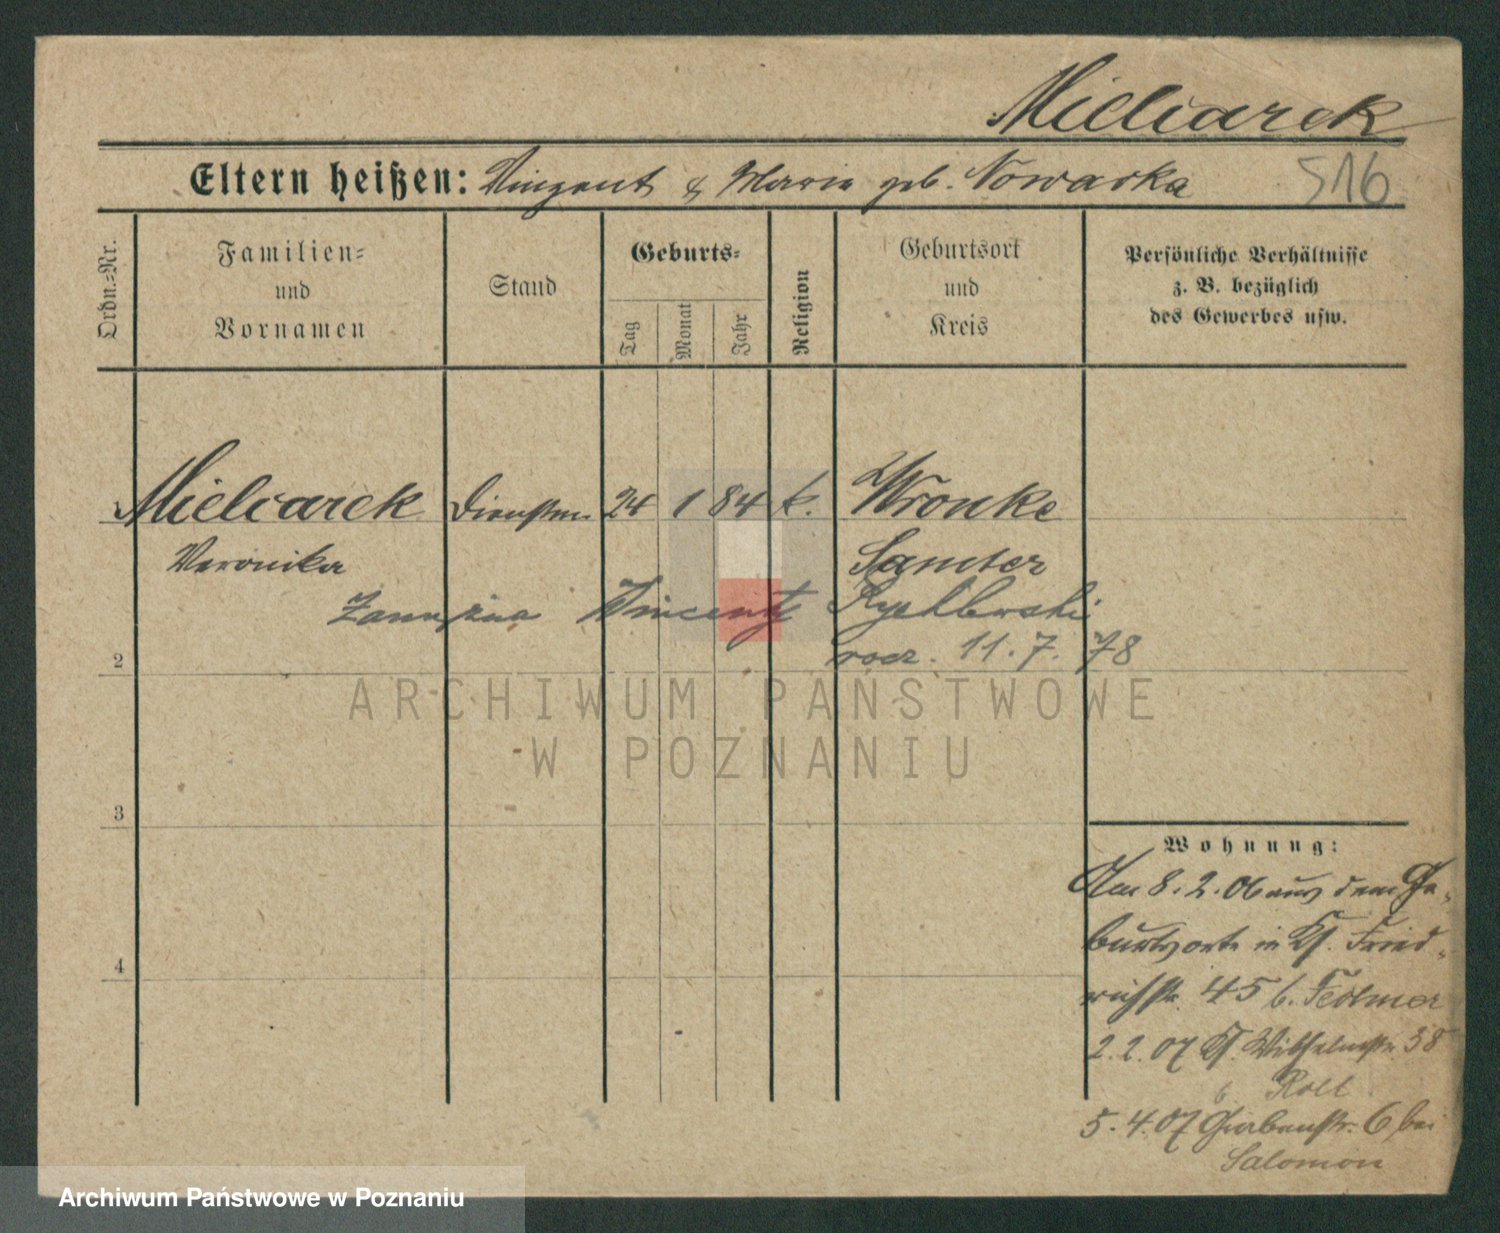 Mielcarek
Eltern heißen: Vinzent & Maria geb. Nowacka 516
Ordn.-Nr.
Familien-
und
Vornamen
Stand
Geburts-
Tag
Monat
Jahr
Religion
Geburtsort
und
Kreis
Persönliche Verhältnisse
z. B. bezüglich
des Gewerbes usw.
Mielcarek Dienstm. 24 1 84 k. Wronke
Veronika Samter
Vincenty Rychlewski
2 11. 7. 78
ARCHIWUM PAŃSTWOWE
W POZNANIU
3
Wohnung:
Am 8. 2. 06 aus dem Ge-
burtsorte in Kf. Fried-
4
richstr. 45 b.
2. 2. 07 Kf. Wilhelmstr. 38
b
5. 4. 07 Grabenstr. 6 bei
Salomon
Archiwum Państwowe w Poznaniu